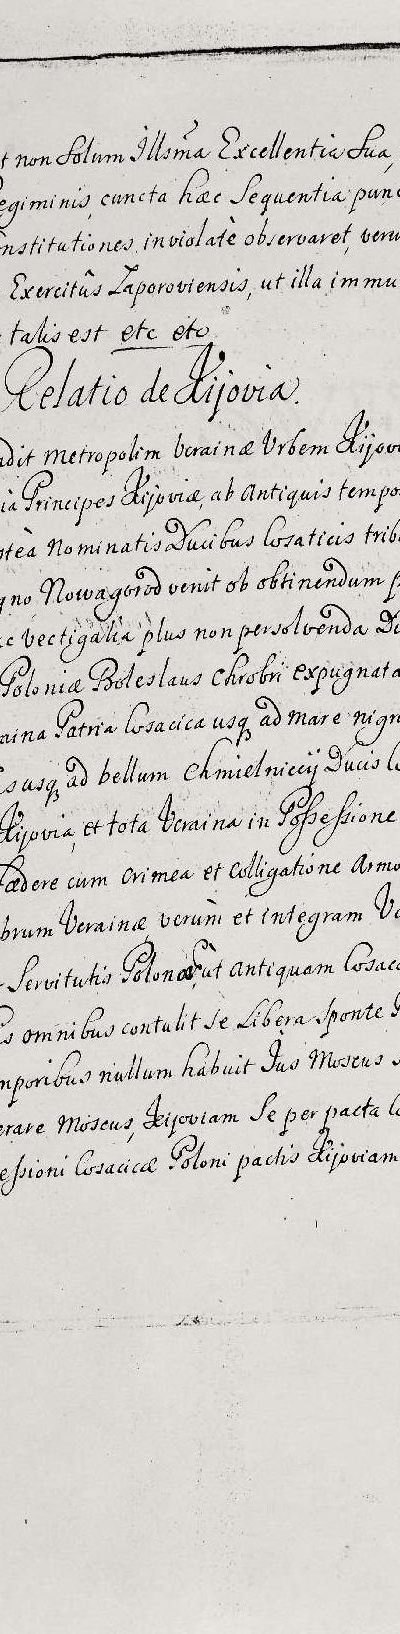 t non Solum Illsma Excellentia Sua,
egiminis, cuncta hæc Sequentia punc
nstitutiones, inviolatè observaret, veru
Exercitûs Zaporoviensis, ut illa immu
talis est etc etc
Relatio de Kijovia.
adit Metropolim Ucrainæ Urbem Kijov
ia Principes Kijoviæ, ab Antiquis tempo
steà Nominatis Ducibus Cosaticis trib
gno Nowagorod venit ob obtinendum p
c vectigalia plus non persolvenda Du
Poloniæ Boleslaus Chrobri expugnata
aina Patria Cosacica usq ad mare nigr
s usq ad bellum Chmielniccij Ducis C
Kijovia, et tota Ucraina in Possessione
Fædere cum Crimea et Colligatione Armo
brum Ucrainæ verùm et integram Uc
Servitutis Polonæ, ut Antiquam Cosac
s omnibus contulit se Libera Sponte
mporibus nullum habuit Jus Moscus
erare Moscus, Kijoviam Se per pacta C
essioni Cosacicæ Poloni pactis Kijoviam